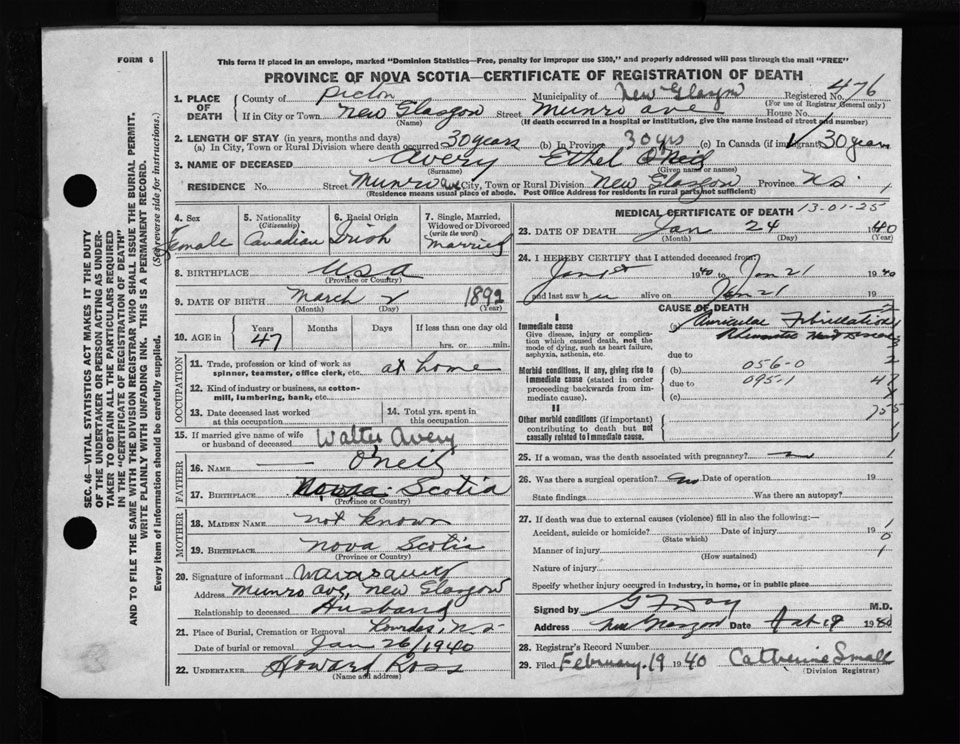 FORM 6
This form if placed in an envelope, marked "Dominion Statistics—Free, penalty for improper use $300," and properly addressed will pass through the mail "FREE"
PROVINCE OF NOVA SCOTIA—CERTIFICATE OF REGISTRATION OF DEATH
1. PLACE OF DEATH
County of Pictou Municipality of New Glasgow Registered No. 476
(For use of Registrar General only)
If in City or Town New Glasgow Street Munro ave House No.
(Name) (If death occurred in a hospital or institution, give the name instead of street and number)
2. LENGTH OF STAY (in years, months and days)
(a) In City, Town or Rural Division where death occurred 30 years (b) In Province 30 yrs (c) In Canada (if immigrant) 30 years
3. NAME OF DECEASED Avery Ethel O'Neil
(Surname) (Given name or names)
RESIDENCE No. Street Munro Ave City, Town or Rural Division New Glasgow Province N.S. 1
(Residence means usual place of abode. Post Office Address for residents in rural parts not sufficient)
4. Sex Female
5. Nationality (Citizenship) Canadian
6. Racial Origin Irish
7. Single, Married, Widowed or Divorced (write the word) Married
8. BIRTHPLACE U.S.A
(Province or Country)
9. DATE OF BIRTH March 2 1892
(Month) (Day) (Year)
10. AGE in Years 47 Months Days If less than one day old hrs. or min.
OCCUPATION
11. Trade, profession or kind of work as spinner, teamster, office clerk, etc. at home
12. Kind of industry or business, as cotton-mill, lumbering, bank, etc.
13. Date deceased last worked at this occupation
14. Total yrs. spent in this occupation
15. If married give name of wife or husband of deceased Walter Avery
FATHER
16. NAME — O'Neil
17. BIRTHPLACE Nova Scotia
(Province or Country)
MOTHER
18. MAIDEN NAME not known
19. BIRTHPLACE Nova Scotia
(Province or Country)
20. Signature of informant
Address Munro Ave, New Glasgow
Relationship to deceased Husband
21. Place of Burial, Cremation or Removal Lourdes, N.S.
Date of burial or removal Jan 26/1940
22. UNDERTAKER Howard Ross
(Name and address)
MEDICAL CERTIFICATE OF DEATH 13-01-25
23. DATE OF DEATH Jan 24 1940
(Month) (Day) (Year)
24. I HEREBY CERTIFY that I attended deceased from:
Jan 1st 1940 to Jan 21 1940
and last saw her alive on Jan 21 19
CAUSE OF DEATH
I
Immediate cause
Give disease, injury or complication which caused death, not the mode of dying, such as heart failure, asphyxia, asthenia, etc.
(a) Auricular Fibrillation
Rheumatic Heart Disease
due to
Morbid conditions, if any, giving rise to immediate cause (stated in order proceeding backwards from immediate cause).
(b) 056-0
due to 095-1 47
(c)
II
Other morbid conditions (important) contributing to death but not causally related to immediate cause.
25. If a woman, was the death associated with pregnancy? no 1
26. Was there a surgical operation? no Date of operation 19
State findings Was there an autopsy?
27. If death was due to external causes (violence) fill in also the following:—
Accident, suicide or homicide? Date of injury 19
(State which)
Manner of injury
(How sustained)
Nature of injury
Specify whether injury occurred in industry, in home, or in public place
Signed by M.D.
Address New Glasgow Date
28. Registrar's Record Number
29. Filed February 19 1940 Catherine Small
(Division Registrar)
SEC. 46—VITAL STATISTICS ACT MAKES IT THE DUTY
OF THE UNDERTAKER OR PERSON ACTING AS UNDER-
TAKER TO OBTAIN ALL THE PARTICULARS REQUIRED
IN THE "CERTIFICATE OF REGISTRATION OF DEATH"
AND TO FILE THE SAME WITH THE DIVISION REGISTRAR WHO SHALL ISSUE THE BURIAL PERMIT.
WRITE PLAINLY WITH UNFADING INK. THIS IS A PERMANENT RECORD.
Every item of information should be carefully supplied. (See reverse side for instructions.)